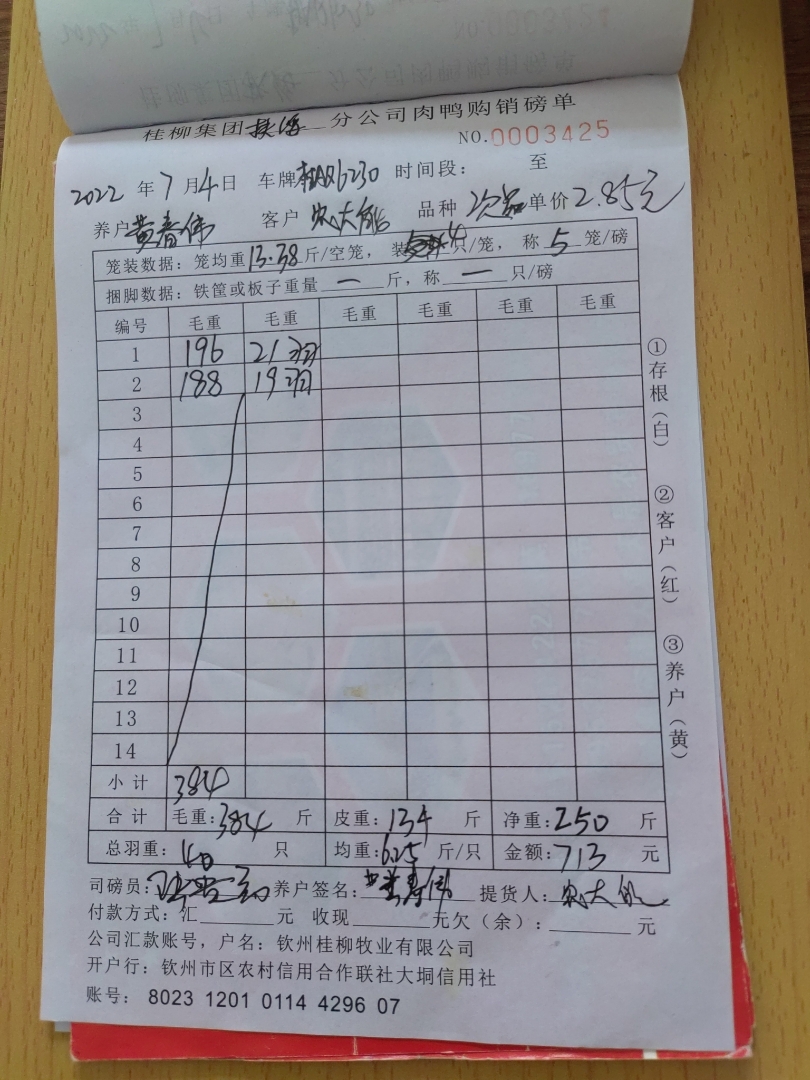 桂柳集团 分公司肉鸭购销磅单
NO.0003425
2022年7月4日 车牌 6230 时间段: 至
养户黄春伟 客户 大能 品种 次品 单价2.85元
笼装数据: 笼均重13.38斤/空笼, 装4只/笼, 称5笼/磅
捆脚数据: 铁筐或板子重量一斤, 称一只/磅
编号 毛重 毛重 毛重 毛重 毛重 毛重
1 196 21羽
2 188 19羽
3
4
5
6
7
8
9
10
11
12
13
14
小计 384
合计 毛重:384斤 皮重:134斤 净重:250斤
总羽重:40只 均重:6.25斤/只 金额:713元
司磅员: 养户签名:黄春伟 提货人: 大能
付款方式: 汇 元 收现 元欠(余): 元
公司汇款账号, 户名: 钦州桂柳牧业有限公司
开户行: 钦州市区农村信用合作联社大垌信用社
账号: 8023 1201 0114 4296 07
①存根(白)
②客户(红)
③养户(黄)